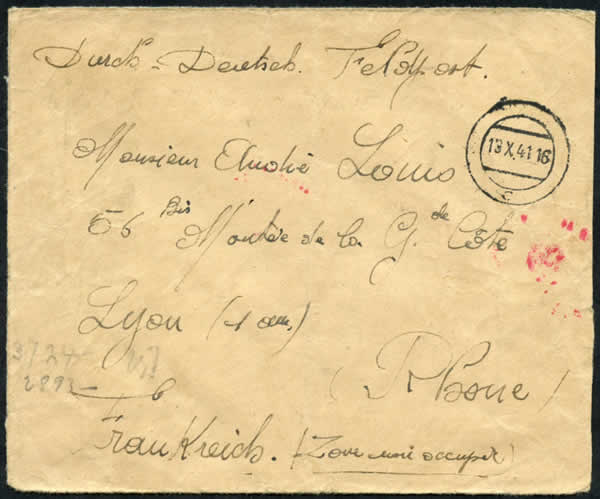 Durch - Deutsch. Feldpost.
13.X.41 16
c
Monsieur Louis
56 Bis Montée de la Gde Côte
Lyon (1 arr.)
3724-
(Rhone)
Frankreich. (Zone non occuper)